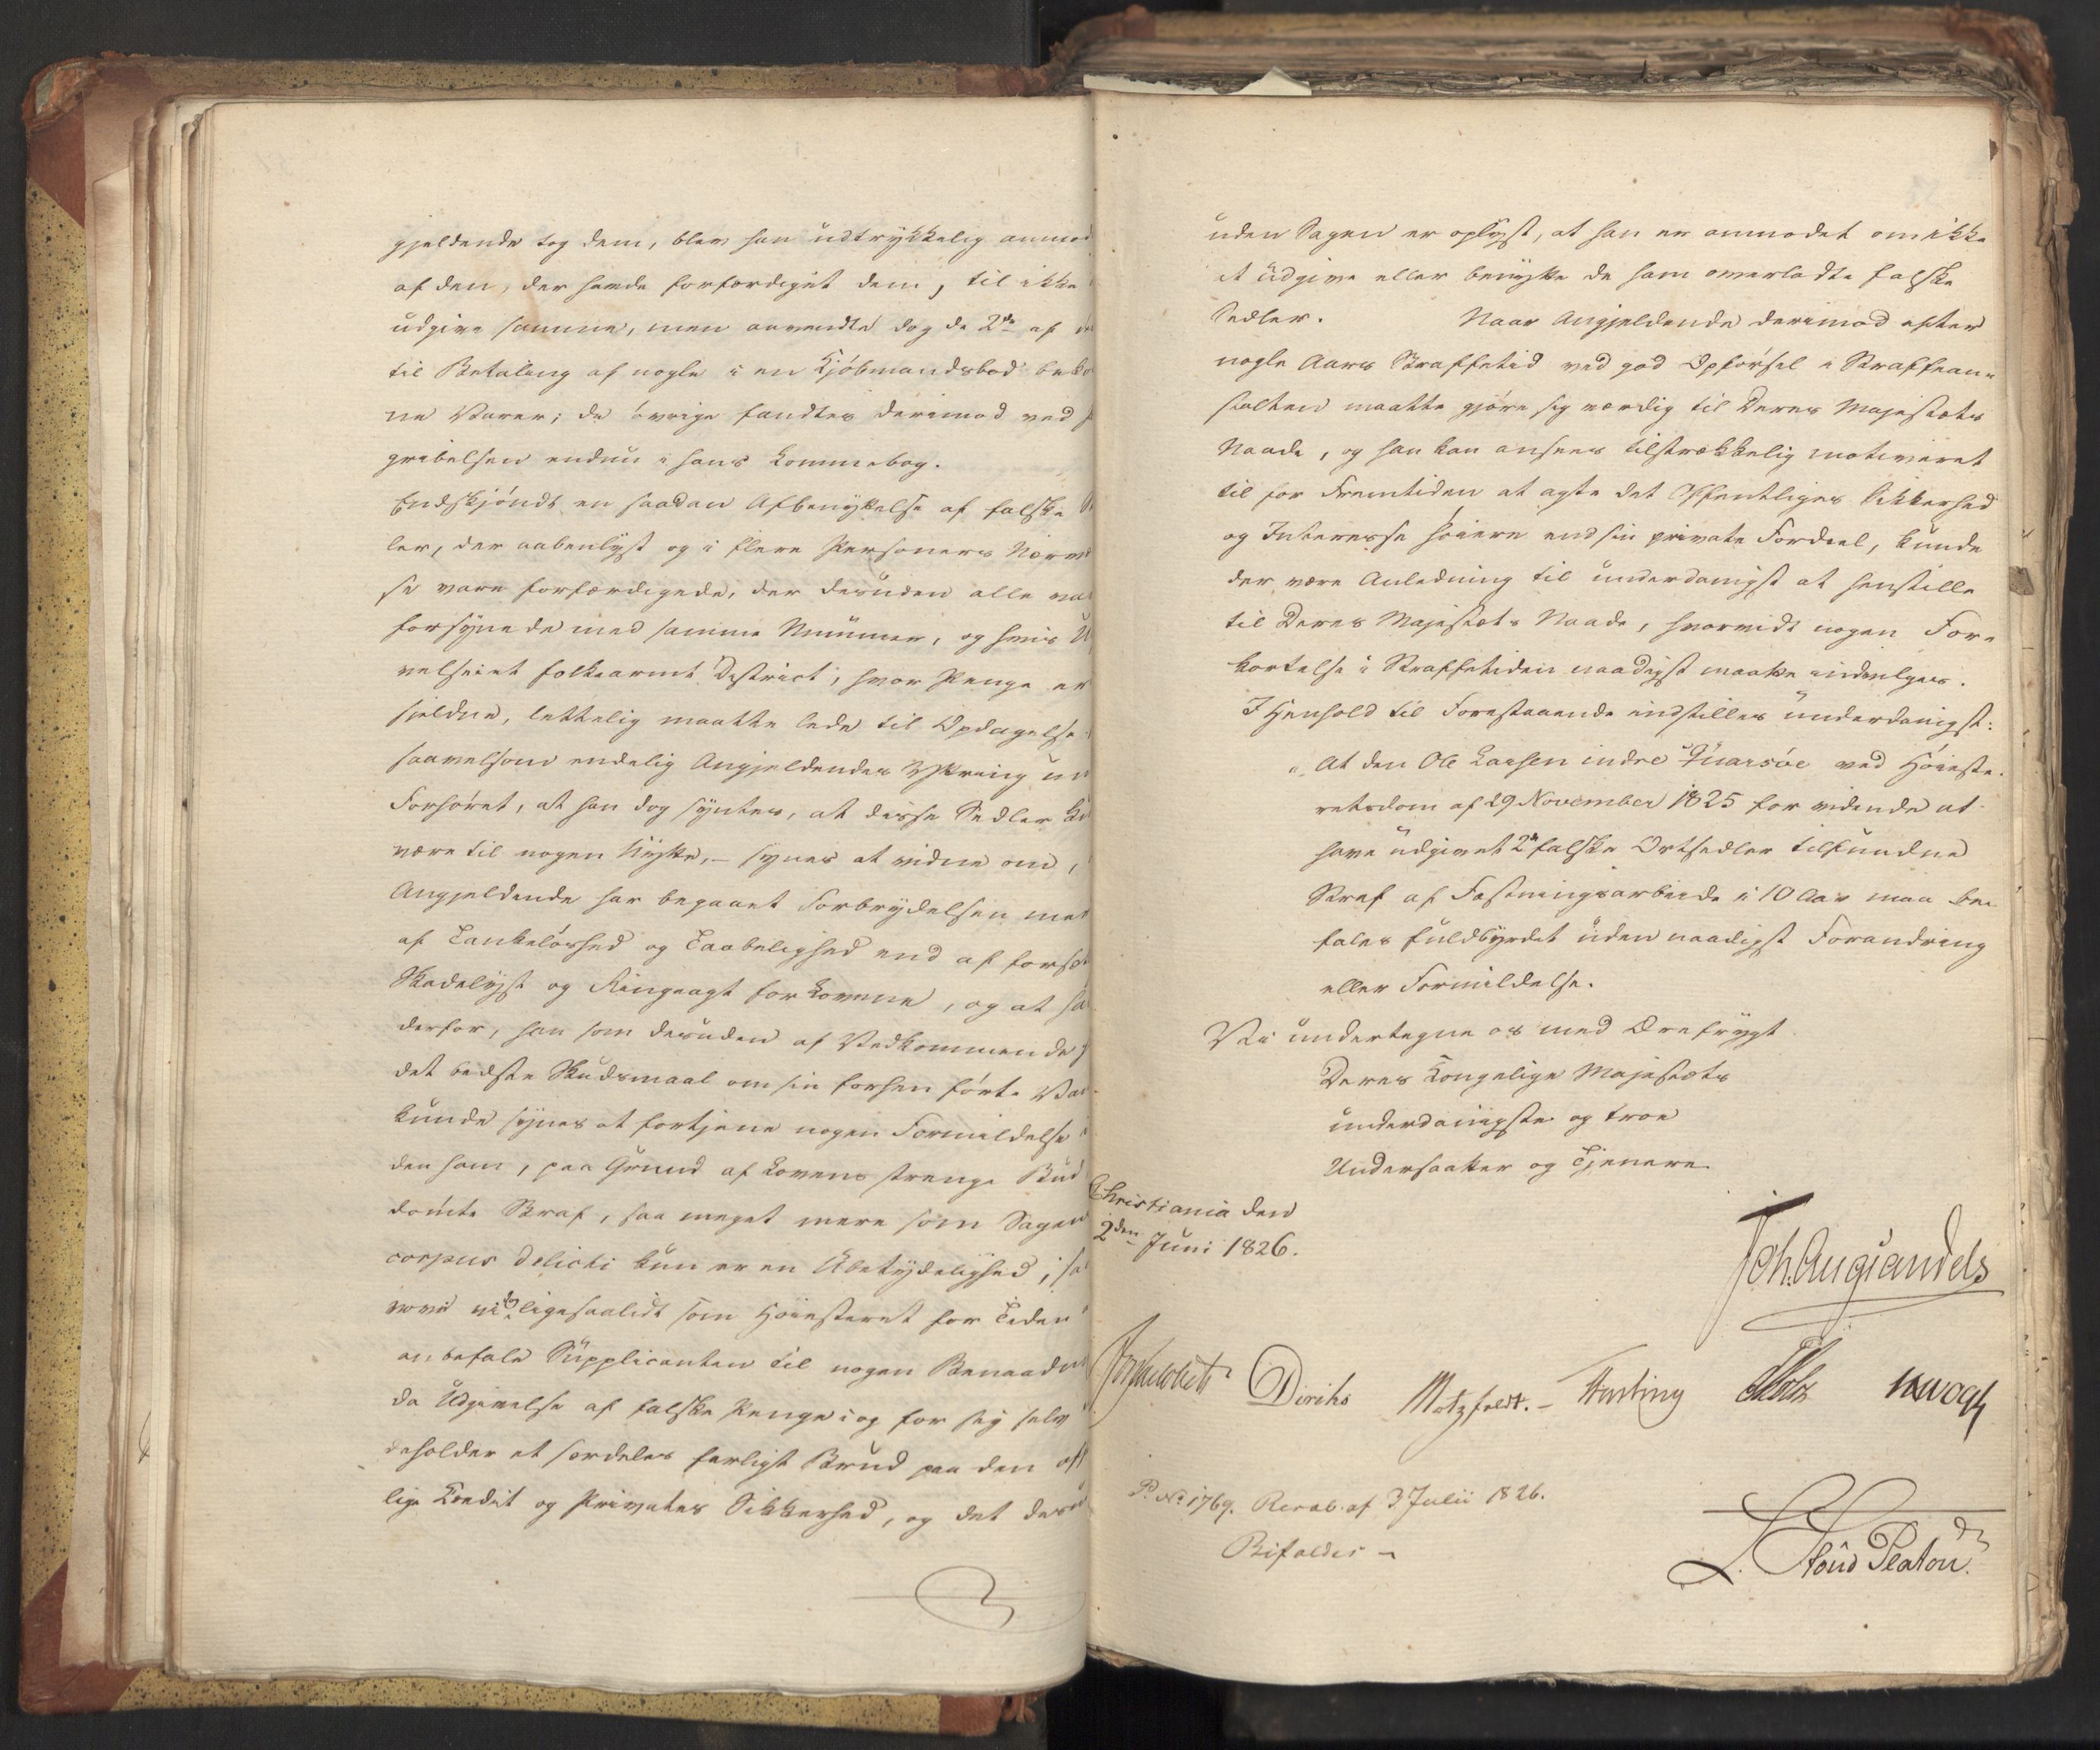 gjeldende tog dem, blev han udtrykkelig anmod
af den, der havde forfærdiget dem, til ikke
udgive samme, men anvendte dog de 2de af
til Betaling af nogle i en Kjöbmandsbod beko
ne Varer; de övrige fandtes derimod ved
gribelsen endnu i hans Lommebog.
Endskjöndt en saadan Afbenyttelse af falske
ler, der aabenlyst og i flere Personers Nærvæ
se vare forfærdigede, der desuden alle va
forsynede med samme Nummer, og hvis U
velse i et folkearmt District, hvor Penge er
sjeldne, lettelig maatte lede til Opdagelse
saavelsom endelig Angjeldendes Yttring un
Forhöret, at han dog syntes, at disse Sedler ku
være til nogen Nytte, – synes at vidne om,
Angjeldende har begaaet Forbrydelsen mer
af Tankelöshed og Taabelighed end af forsæt
Skadelyst og Ringeagt for Lovene, og at ha
derfor, han som desuden af Vedkommende
det bedste Skudsmaal om sin forhen förte Van
kunde synes at fortjene nogen Formildelse i
den ham, paa Grund af Lovens strenge Bud
dömte Straf, saa meget mere som Sagens
corpus delicti kun er en Ubetydelighed,
vove vi dog ligesaalidt som Höiesteret for Tiden
anbefale Supplicanten til nogen Benaadn
da Udgivelse af falske Penge i og for sig selv
deholder et særdeles farligt Brud paa den off
lige Credit og Privates Sikkerhed, og det desu
uden Sagen er oplyst, at han er anmodet om ikke
at udgive eller benytte de ham overladte falske
Sedler. Naar Angjeldende derimod efter
nogle Aars Straffetid ved god Opförsel i Straffean-
stalten maatte gjöre sig værdig til Deres Majestæts
Naade, og han kan ansees tilstrækkelig motiveret
til for Fremtiden at agte det Offentliges Sikkerhed
og Interesse höiere end sin private Fordeel, kunde
der være Anledning til underdanigst at henstille
til Deres Majestæts Naade, hvorvidt nogen For-
kortelse i Straffetiden naadigst maatte indvilges.
I Henhold til Forestaaende indstilles underdanigst:
"At den Ole Larsen indre Quarsöe ved Höieste-
retsdom af 29 November 1825 for vidende at
have udgivet 2de falske Ortsedler tilfundne
Straf af Fæstningsarbeide i 10 Aar maa be-
fales fuldbyrdet uden naadigst Forandring
eller Formildelse.
Vi undertegne os med Ærefrygt
Deres Kongelige Majestæts
underdanigste og troe
Undersaatter og Tjenere.
Christiania den
2den Juni 1826.
Joh. Aug. Sandels
Diriks Motzfeldt. – Fasting Holst NVogt
P. No 1769. Resol. af 3 Julii 1826.
Bifaldes –
L. Stoud Platou.